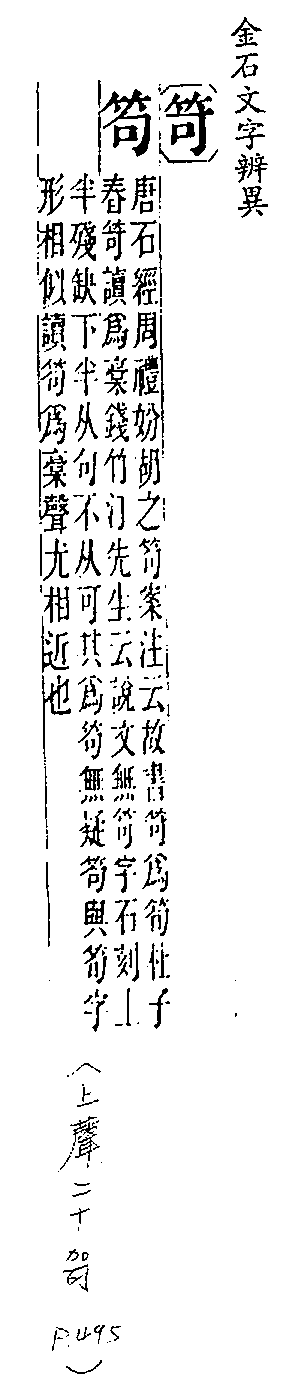 金石文字辨異
笴
笱
唐石經周禮妢胡之笱案注云故書笴爲筍杜子
春笴讀爲槀錢竹汀先生云說文無笴字石刻上
半殘缺下半从句不从可其爲笱無疑笱與筍字
形相似讀笱爲槀聲尤相近也
(上聲二十哿 P.495)